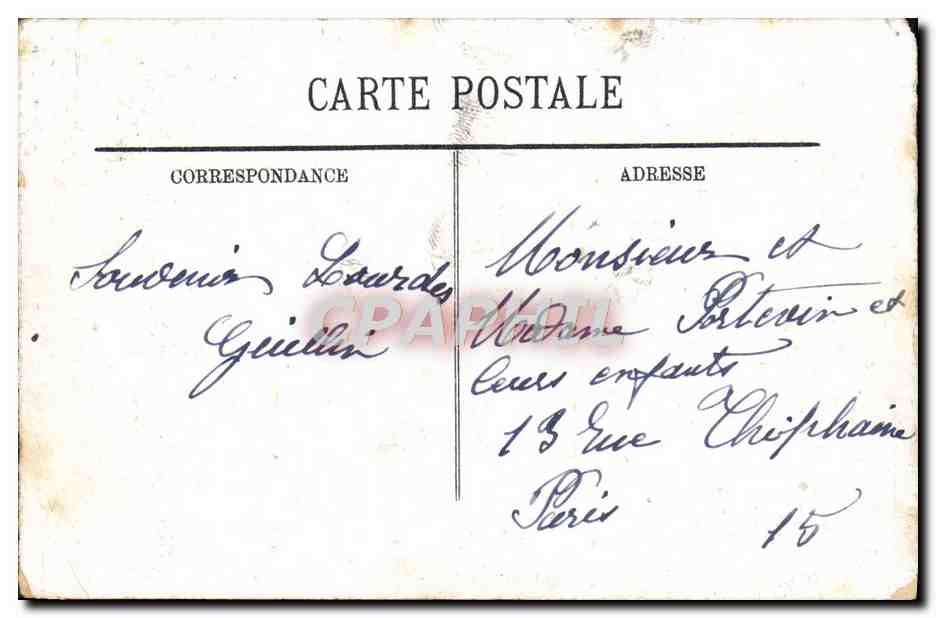 CARTE POSTALE
CORRESPONDANCE
ADRESSE
Souvenir Lourdes
Guillin
Monsieur et
Madame Portevin et
leurs enfants
13 Rue Théophraine
Paris 15
CPAPHIL